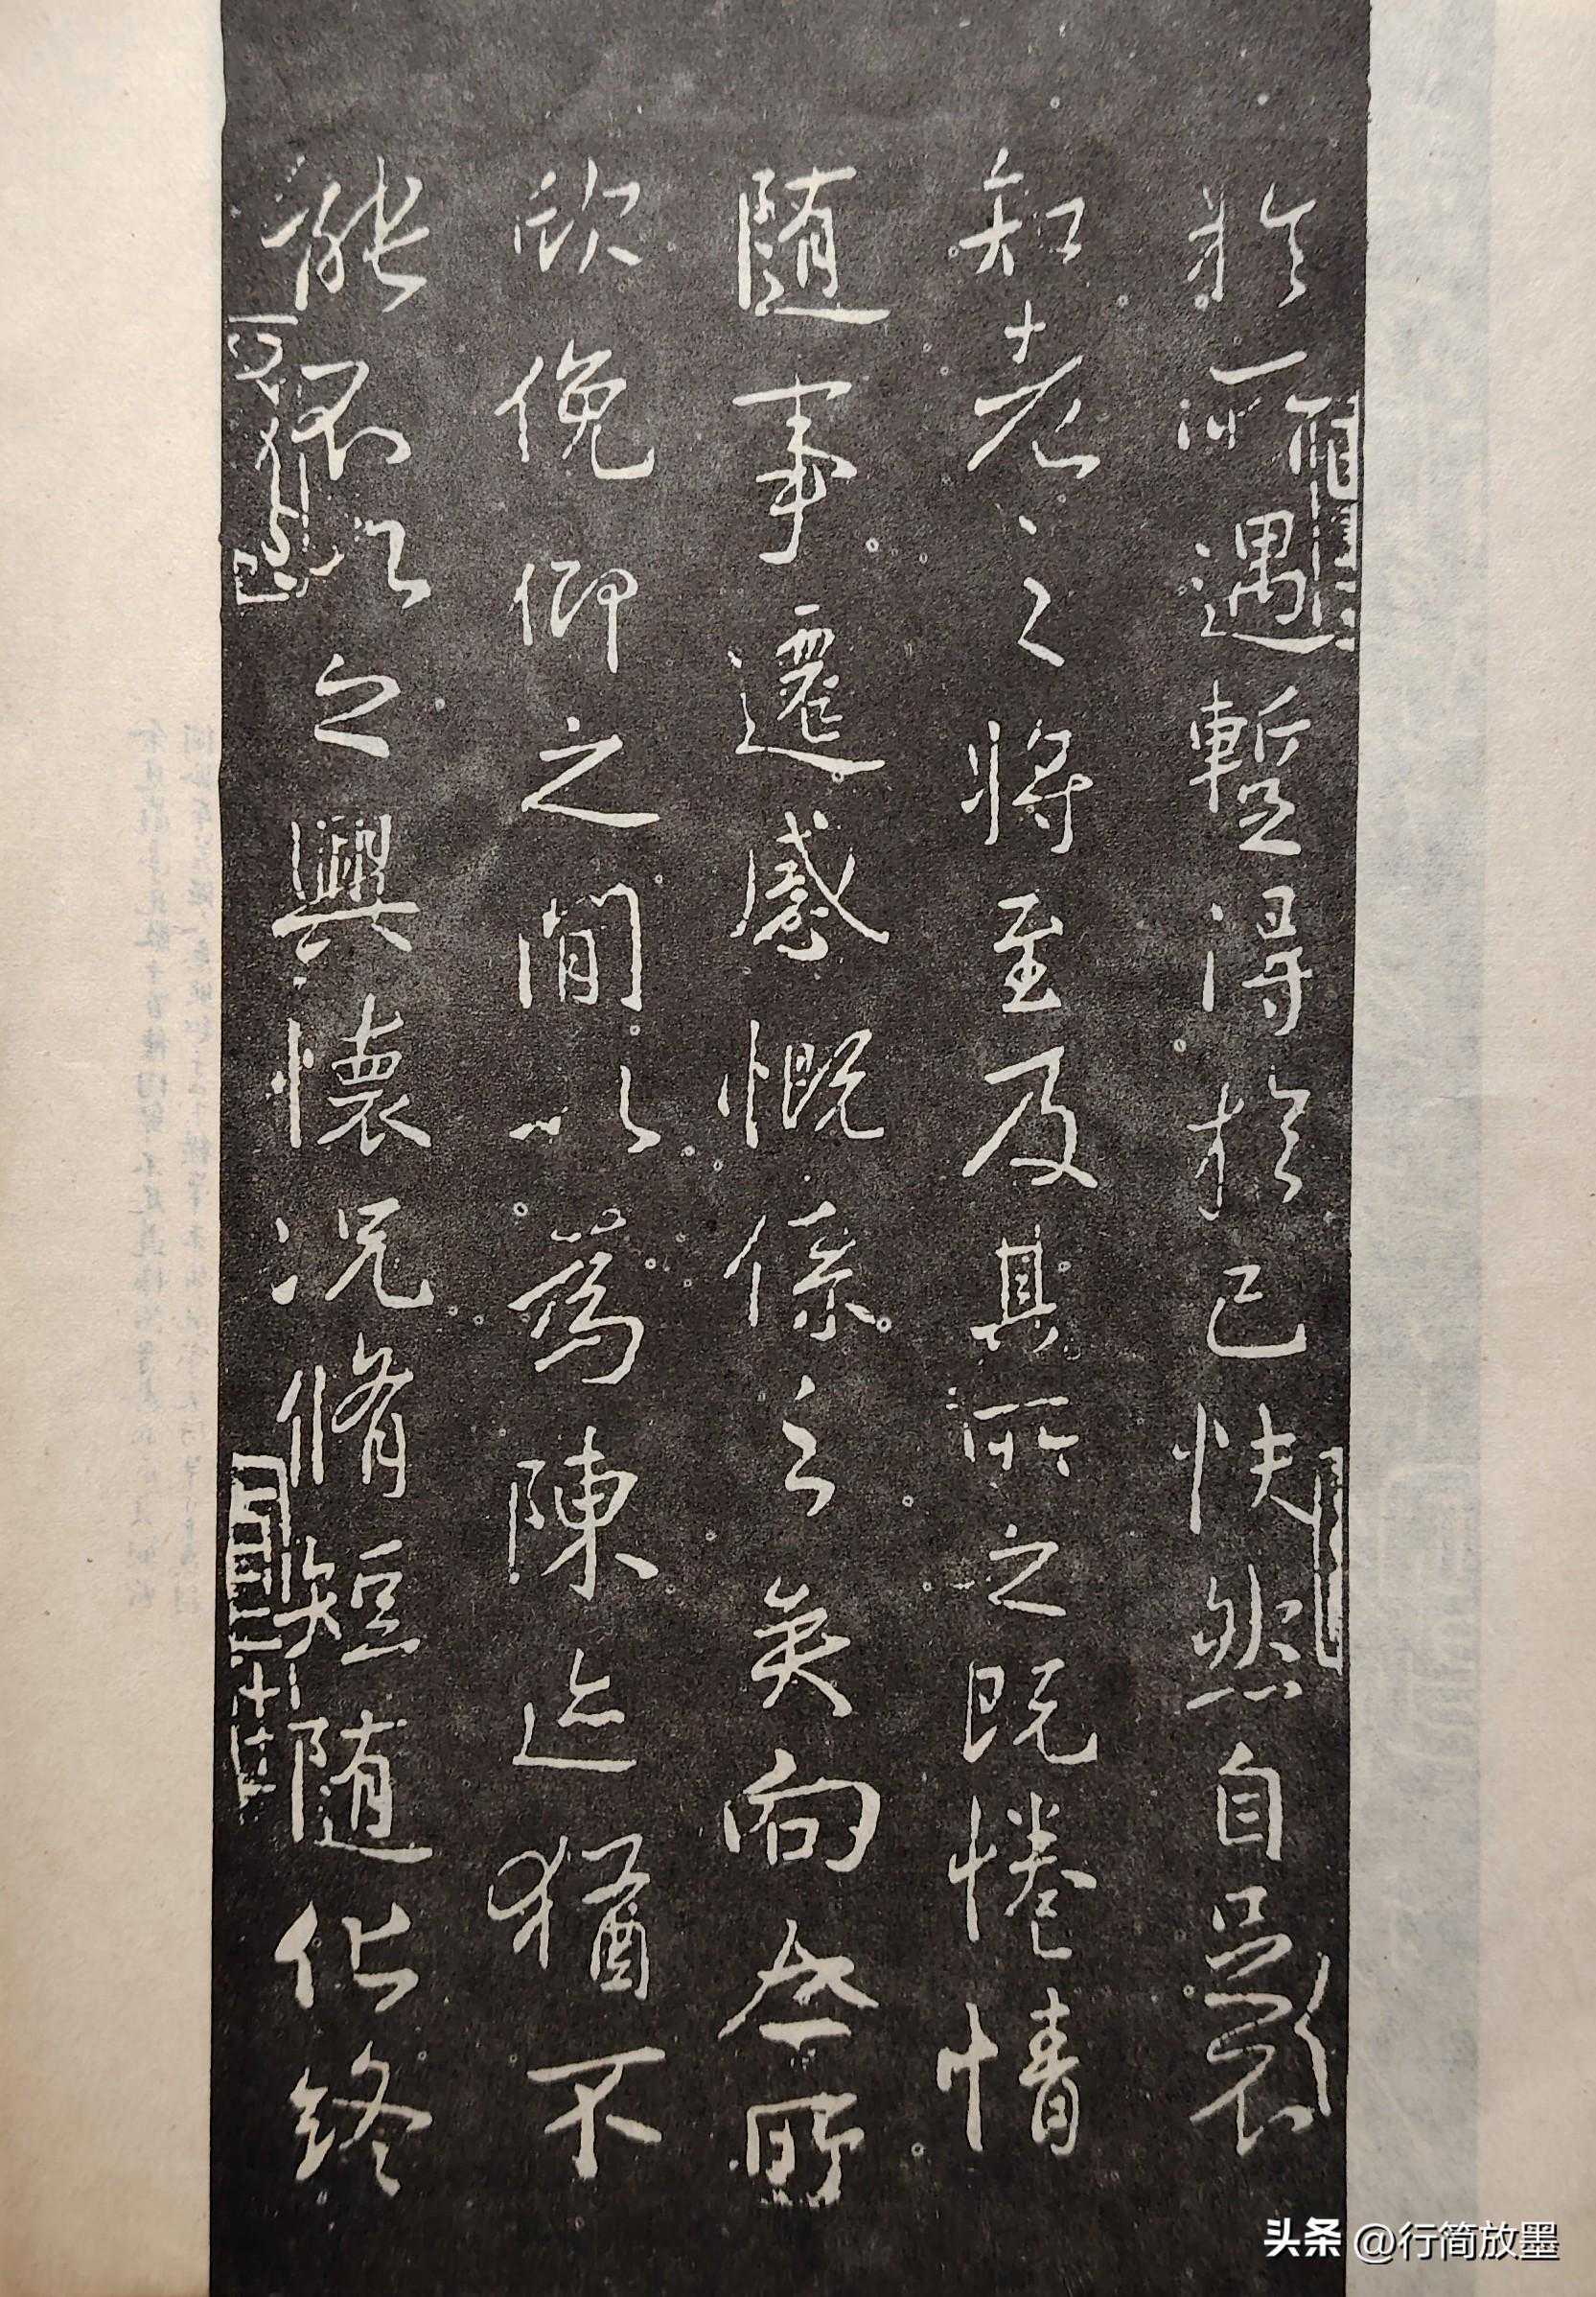 於所遇蹔得於己快然自足不
知老之将至及其所之既惓情
随事遷感慨係之矣向之所
欣俛仰之間以為陳迹猶不
能不以之興懷况脩短随化終
头条 @行简放墨